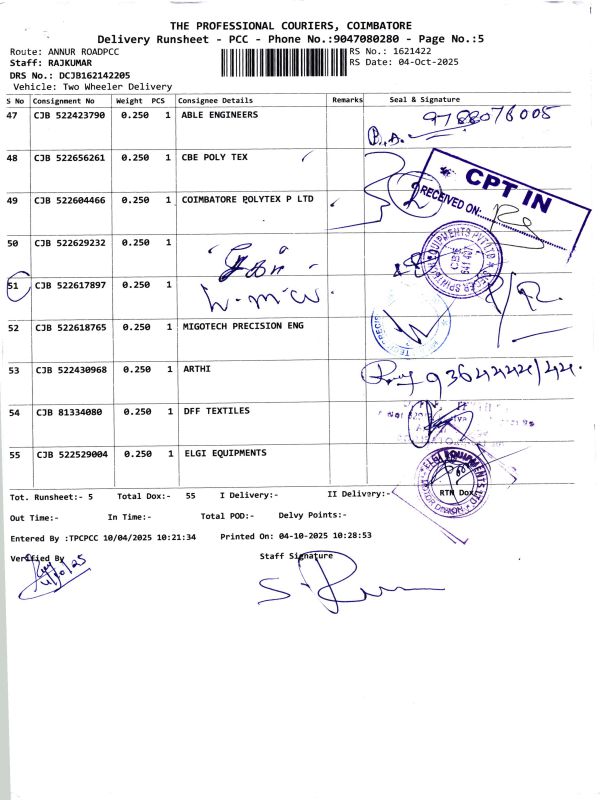 THE PROFESSIONAL COURIERS, COIMBATORE
Delivery Runsheet - PCC - Phone No.:9047080280 - Page No.:5
Route: ANNUR ROADPCC RS No.: 1621422
Staff: RAJKUMAR RS Date: 04-Oct-2025
DRS No.: DCJB162142205
Vehicle: Two Wheeler Delivery
S No Consignment No Weight PCS Consignee Details Remarks Seal & Signature
47 CJB 522423790 0.250 1 ABLE ENGINEERS 9788076005
48 CJB 522656261 0.250 1 CBE POLY TEX
CPT IN
RECEIVED ON:
49 CJB 522604466 0.250 1 COIMBATORE POLYTEX P LTD
50 CJB 522629232 0.250 1
51 CJB 522617897 0.250 1
52 CJB 522618765 0.250 1 MIGOTECH PRECISION ENG
53 CJB 522430968 0.250 1 ARTHI
54 CJB 81334080 0.250 1 DFF TEXTILES
55 CJB 522529004 0.250 1 ELGI EQUIPMENTS
ELGI EQUIPMENTS LTD
MOTOR DIVISION
Tot. Runsheet:- 5 Total Dox:- 55 I Delivery:- II Delivery:- RTN Dox:
Out Time:- In Time:- Total POD:- Delvy Points:-
Entered By :TPCPCC 10/04/2025 10:21:34 Printed On: 04-10-2025 10:28:53
Verified By Staff Signature
4/10/25